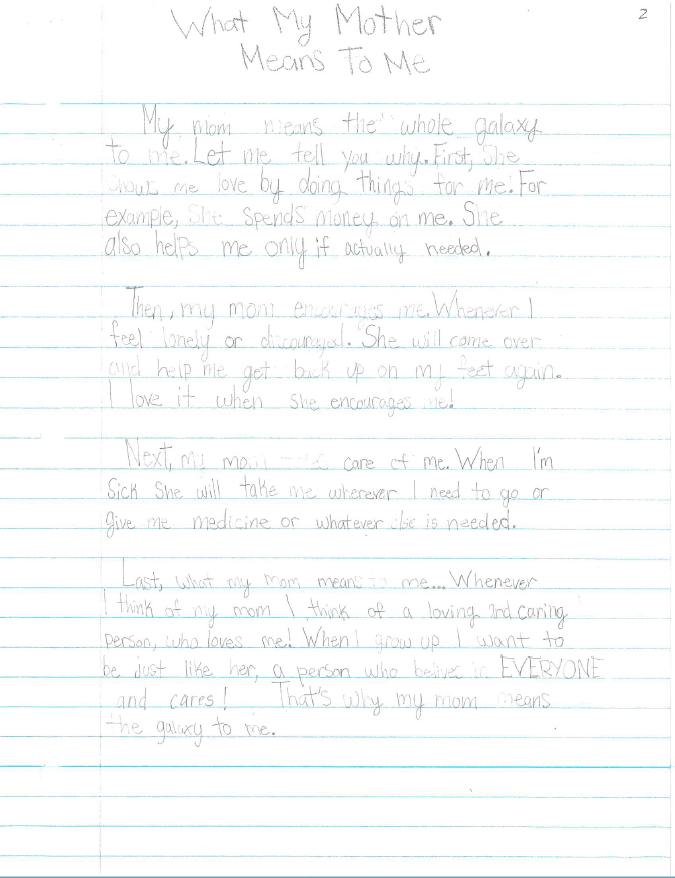 What My Mother
2
Means To Me
My mom means the whole galaxy
to me. Let me tell you why. First, She
shows me love by doing things for me! For
example, She spends money on me. She
also helps me only if actually needed.
Then, my mom encourages me. Whenever I
feel lonely or discouraged. She will come over
and help me get back up on my feet again.
I love it when she encourages me!
Next, my mom care of me. When I'm
Sick She will take me wherever I need to go or
give me medicine or whatever else is needed.
Last, what my mom means to me... Whenever
I think of my mom I think of a loving and caring
person, who loves me! When I grow up I want to
be just like her, a person who in EVERYONE
and cares! That's why my mom means
the galaxy to me.